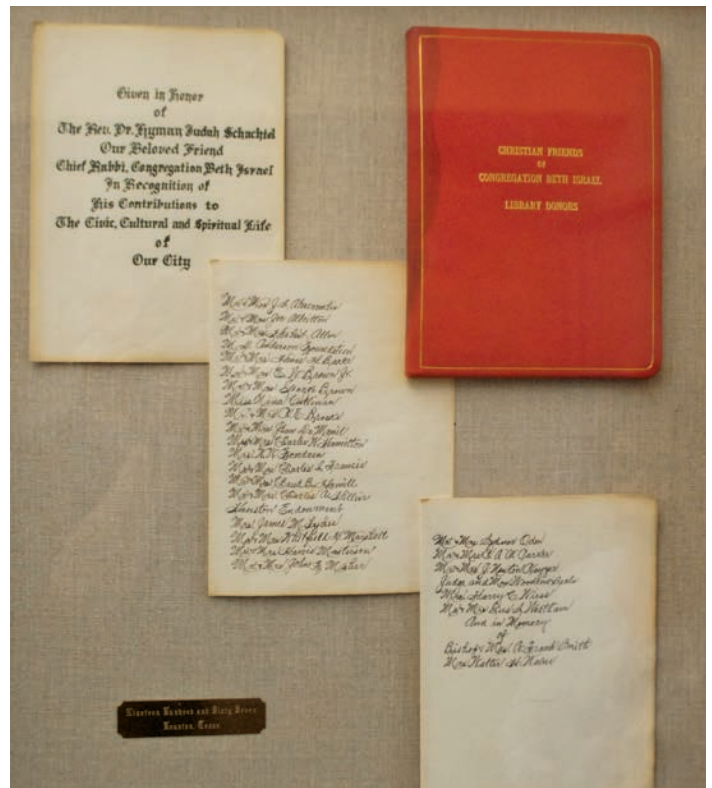 Given in Honor
of
The Rev. Dr. Hyman Judah Schachtel
Our Beloved Friend
Chief Rabbi, Congregation Beth Israel
In Recognition of
His Contributions to
The Civic, Cultural and Spiritual Life
of
Our City
CHRISTIAN FRIENDS
OF
CONGREGATION BETH ISRAEL
LIBRARY DONORS
Mr & Mrs J. S. Abercrombie
Mr & Mrs Joe Allbritton
Mr & Mrs Herbert Allen
M. D. Anderson Foundation
Mr & Mrs
Mr & Mrs E. Brown Jr.
Mr & Mrs George Brown
Miss Nina Cullinan
Mr & Mrs
Mr & Mrs John De Menil
Mr & Mrs Charles W. Hamilton
Mrs
Mr & Mrs Charles I. Francis
Mr & Mrs
Mr & Mrs Charles
Houston Endowment
Mrs James M.
Mr & Mrs H. Marshall
Mr & Mrs Harris Masterson
Mr & Mrs John Mecom
Mr & Mrs Oden
Mr & Mrs
Mr & Mrs J. Newton Rayzor
Judge and Mrs
Mrs Harry C. Wiess
Mr & Mrs Gus S. Wortham
And in Memory
of
Bishop & Mrs A. Frank Smith
Mrs
Nineteen Hundred and Sixty Seven
Houston, Texas